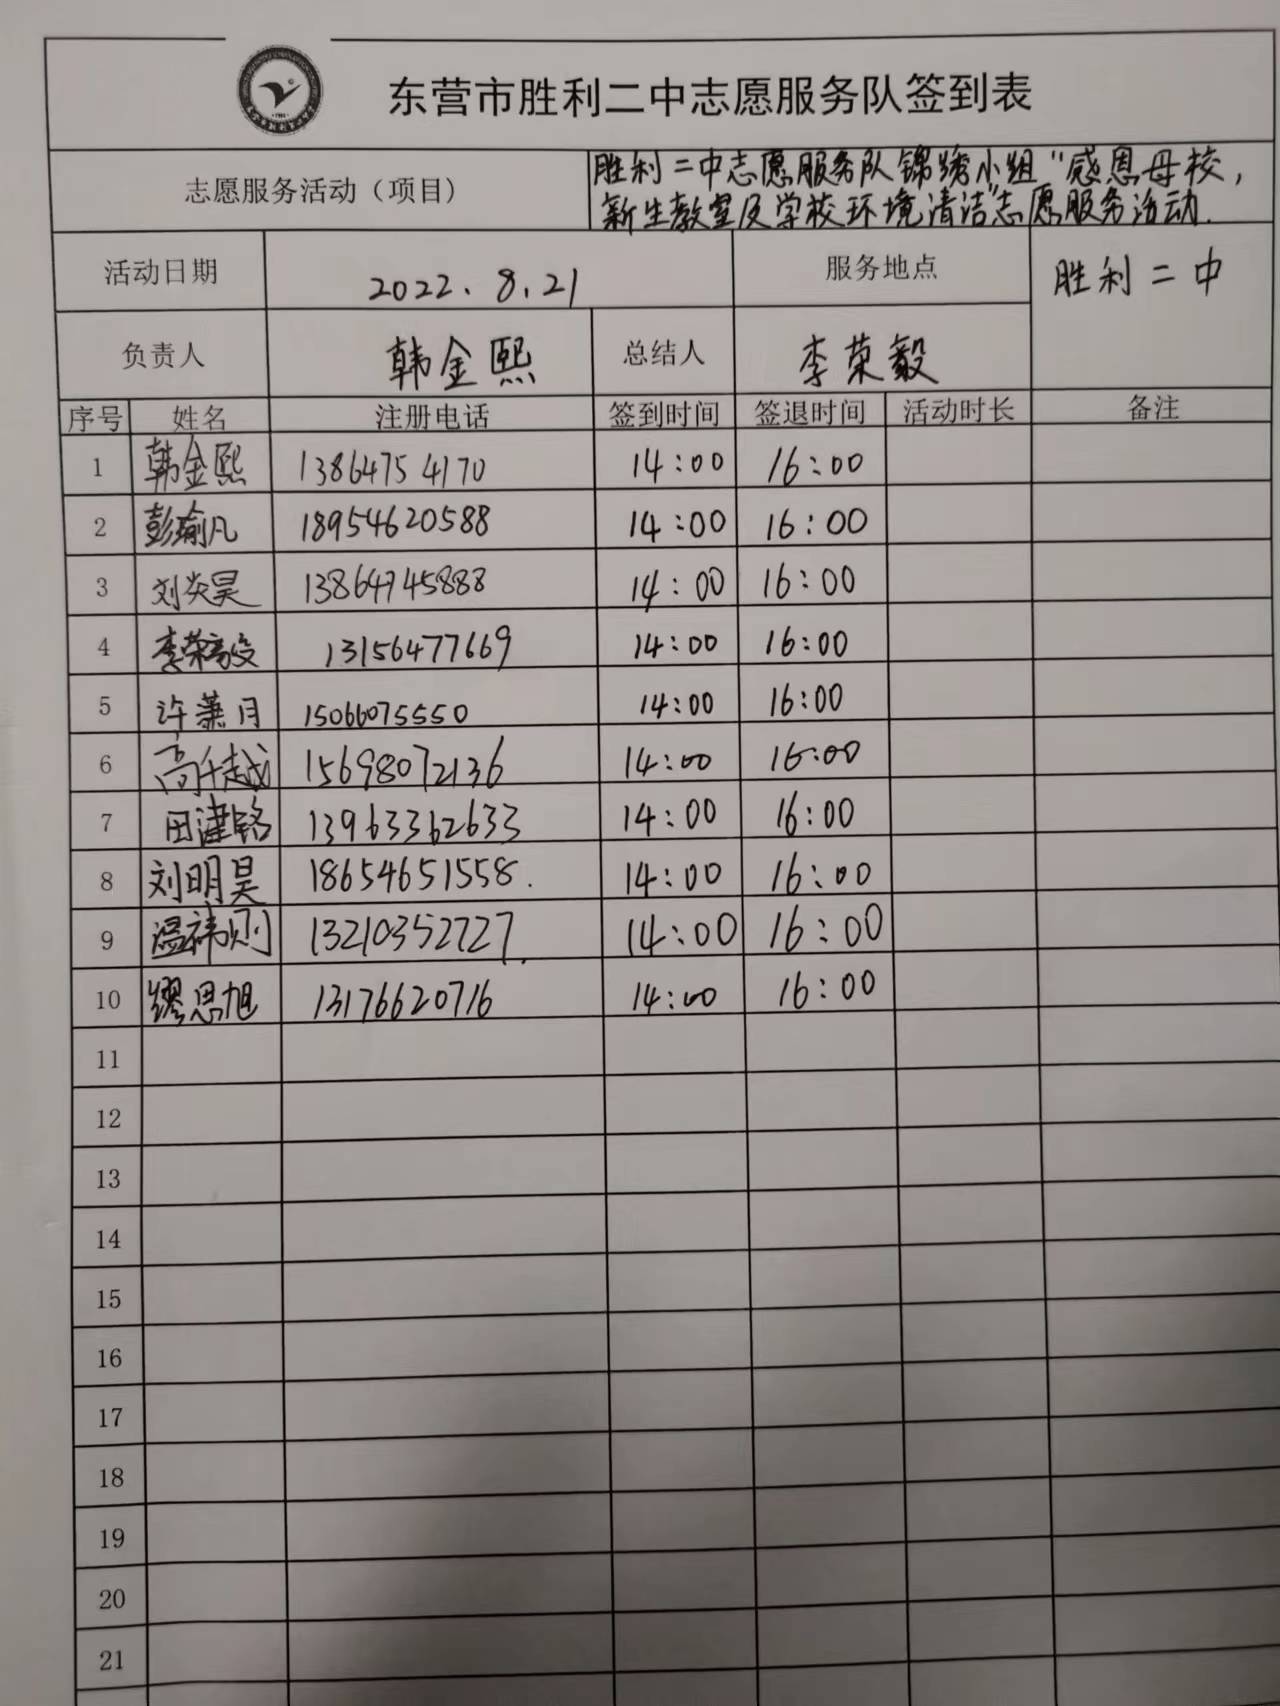 东营市胜利二中志愿服务队签到表
志愿服务活动（项目） 胜利二中志愿服务队锦绣小组“感恩母校，
新生教室及学校环境清洁”志愿服务活动.
活动日期 2022.8.21 服务地点 胜利二中
负责人 韩金熙 总结人 李荣毅
序号 姓名 注册电话 签到时间 签退时间 活动时长 备注
1 韩金熙 13864754170 14:00 16:00
2 彭瑜凡 18954620588 14:00 16:00
3 刘炎昊 13864745888 14:00 16:00
4 李荣毅 13156477669 14:00 16:00
5 许萧月 15066075550 14:00 16:00
6 高千越 15698072136 14:00 16:00
7 田津铭 13963362633 14:00 16:00
8 刘明昊 18654651558. 14:00 16:00
9 温祎则 13210352727. 14:00 16:00
10 缪思旭 13176620716 14:00 16:00
11
12
13
14
15
16
17
18
19
20
21